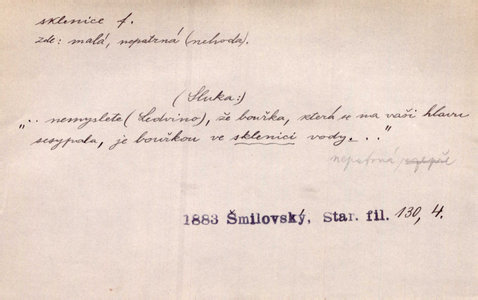 sklenice f.
zde: malá, nepatrná (nehoda).
(Sluka:)
„.. nemyslete (Ledvino), že bouřka, která se na vaši hlavu
sesypala, je bouřkou ve sklenici vody. . .“
nepatrná
1883 Šmilovský, Star. fil. 130, 4.